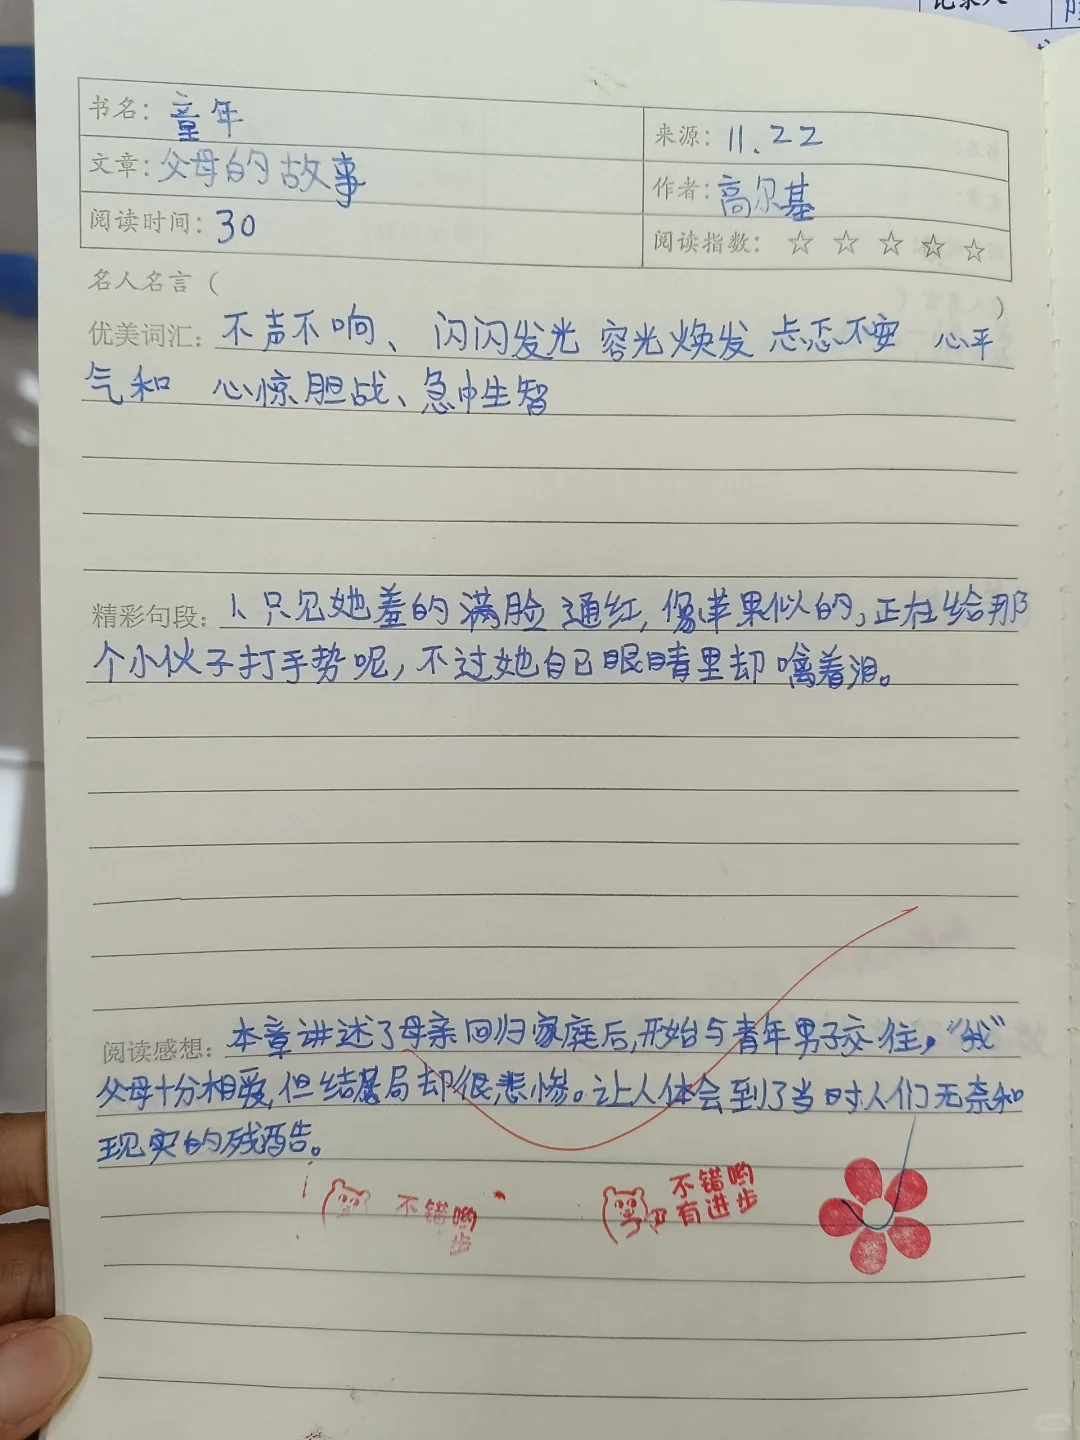 记录人
书名：童年
来源：11.22
文章：父母的故事
作者：高尔基
阅读时间：30
阅读指数：☆ ☆ ☆ ☆ ☆
名人名言（ ）
优美词汇：不声不响、闪闪发光 容光焕发 忐忑不安 心平
气和 心惊胆战、急中生智
精彩句段：1、只见她羞的满脸通红，像苹果似的，正在给那
个小伙子打手势呢，不过她自己眼睛里却噙着泪。
阅读感想：本章讲述了母亲回归家庭后，开始与青年男子交往，“我”
父母十分相爱，但结局却很悲惨。让人体会到了当时人们无奈和
现实的残酷。
不错哟
步
不错哟
有进步